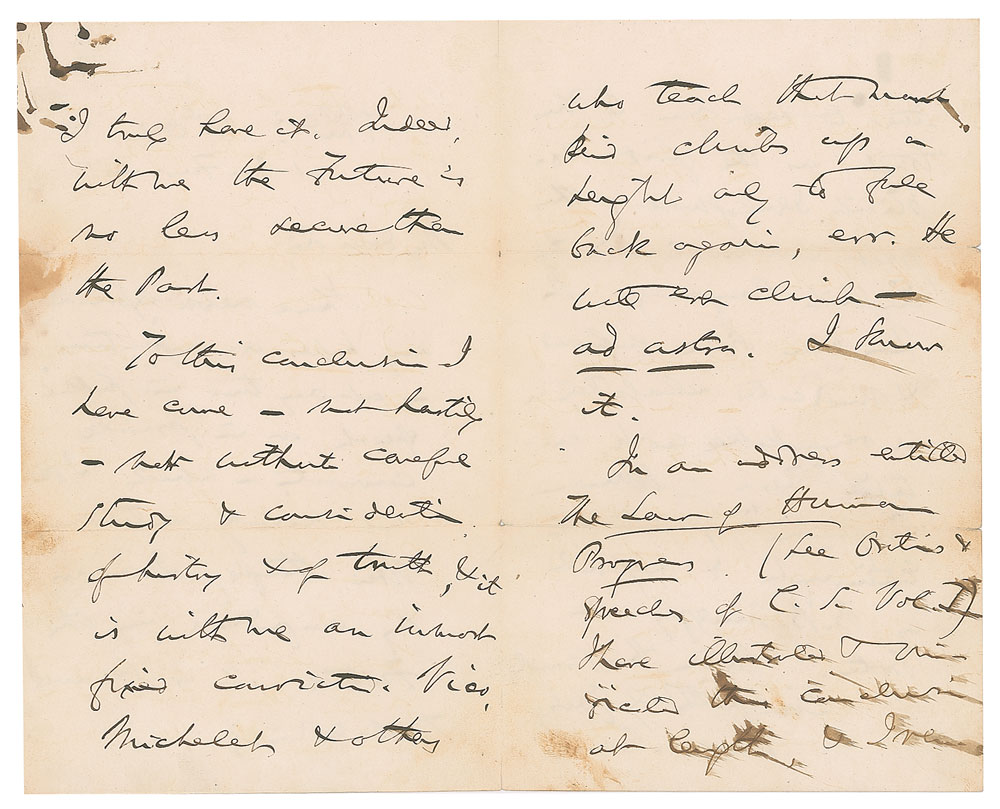 I truly have it. Indeed,
with me the Future is
no less secure than
the Past.
To this conclusion I
have come — not hastily
— not without careful
study & consideration
of history & of truth, & it
is with me an inmost
fixed conviction. Vico,
Michelet & others
who teach that man-
kind climbs up a
height only to fall
back again, err. He
will ever climb —
ad astra. I know
it.
In an address entitled
The Law of Human
Progress. (See Orations &
speeches of C. S. Vol. )
I have illustrated & vin-
dicated this conclusion
at length, &